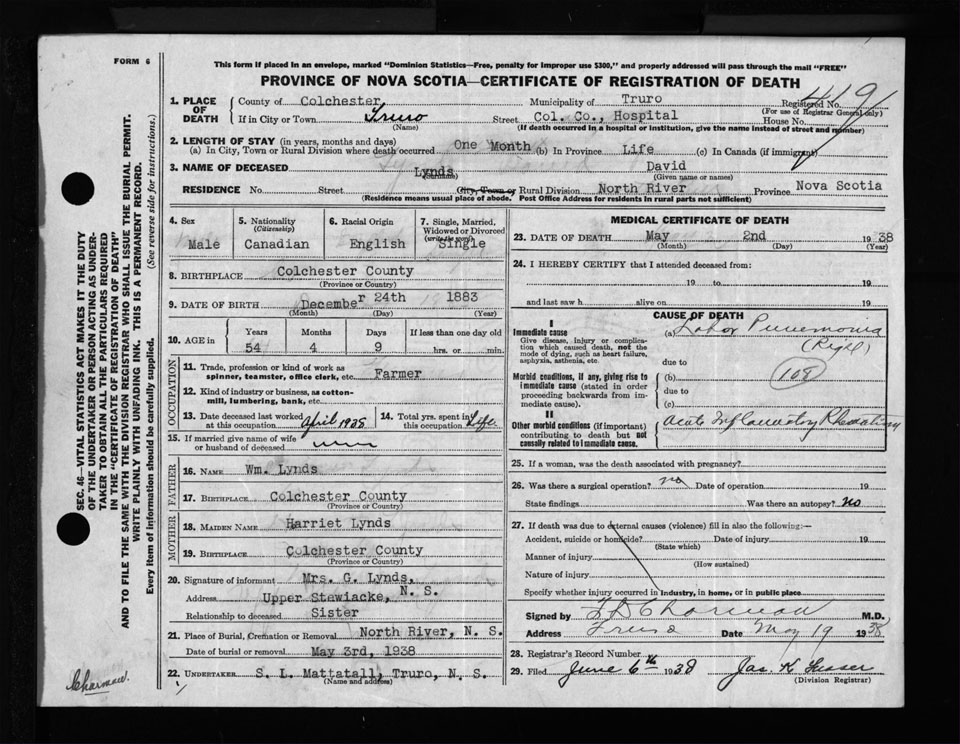 FORM 6
This form if placed in an envelope, marked "Dominion Statistics—Free, penalty for improper use $300," and properly addressed will pass through the mail "FREE"
PROVINCE OF NOVA SCOTIA—CERTIFICATE OF REGISTRATION OF DEATH
1. PLACE OF DEATH County of Colchester Municipality of Truro Registered No. 419
(For use of Registrar General only)
If in City or Town Truro Street Col. Co., Hospital House No.
(Name) (If death occurred in a hospital or institution, give the name instead of street and number)
2. LENGTH OF STAY (in years, months and days)
(a) In City, Town or Rural Division where death occurred One Month (b) In Province Life (c) In Canada (if immigrant)
3. NAME OF DECEASED Lynds David
(Surname) (Given name or names)
RESIDENCE No. Street City, Town or Rural Division North River Province Nova Scotia
(Residence means usual place of abode. Post Office Address for residents in rural parts not sufficient)
4. Sex Male
5. Nationality (Citizenship) Canadian
6. Racial Origin English
7. Single, Married, Widowed or Divorced (write the word) Single
8. BIRTHPLACE Colchester County
(Province or Country)
9. DATE OF BIRTH December 24th 1883
(Month) (Day) (Year)
10. AGE in Years Months Days If less than one day old
54 4 9 hrs. or min.
OCCUPATION
11. Trade, profession or kind of work as spinner, teamster, office clerk, etc. Farmer
12. Kind of industry or business, as cotton-mill, lumbering, bank, etc.
13. Date deceased last worked at this occupation April 1938
14. Total yrs. spent in this occupation Life
15. If married give name of wife or husband of deceased
FATHER
16. NAME Wm. Lynds
17. BIRTHPLACE Colchester County
(Province or Country)
MOTHER
18. MAIDEN NAME Harriet Lynds
19. BIRTHPLACE Colchester County
(Province or Country)
20. Signature of informant Mrs. G. Lynds,
Address Upper Stewiacke, N. S.
Relationship to deceased Sister
21. Place of Burial, Cremation or Removal North River, N. S.
Date of burial or removal May 3rd, 1938
22. UNDERTAKER S. L. Mattatall, Truro, N. S.
(Name and address)
MEDICAL CERTIFICATE OF DEATH
23. DATE OF DEATH May 2nd 1938
(Month) (Day) (Year)
24. I HEREBY CERTIFY that I attended deceased from:
19 to 19
and last saw h alive on 19
CAUSE OF DEATH
I
Immediate cause (a) Lobar Pneumonia
(Right)
Give disease, injury or complication which caused death, not the mode of dying, such as heart failure, asphyxia, asthenia, etc.
due to
108
Morbid conditions, if any, giving rise to immediate cause (stated in order proceeding backwards from immediate cause). (b)
due to
(c)
II
Other morbid conditions (if important) contributing to death but not causally related to immediate cause. Acute Inflamatory Rheumatism
25. If a woman, was the death associated with pregnancy?
26. Was there a surgical operation? no Date of operation 19
State findings Was there an autopsy? no
27. If death was due to external causes (violence) fill in also the following:—
Accident, suicide or homicide? Date of injury 19
(State which)
Manner of injury
(How sustained)
Nature of injury
Specify whether injury occurred in industry, in home, or in public place
Signed by Charman M.D.
Address Truro Date May 19 1938
28. Registrar's Record Number
29. Filed June 6th 1938 Jas. K
(Division Registrar)
SEC. 46—VITAL STATISTICS ACT MAKES IT THE DUTY
OF THE UNDERTAKER OR PERSON ACTING AS UNDER-
TAKER TO OBTAIN ALL THE PARTICULARS REQUIRED
IN THE "CERTIFICATE OF REGISTRATION OF DEATH"
AND TO FILE THE SAME WITH THE DIVISION REGISTRAR WHO SHALL ISSUE THE BURIAL PERMIT.
WRITE PLAINLY WITH UNFADING INK. THIS IS A PERMANENT RECORD.
Every item of information should be carefully supplied. (See reverse side for instructions.)
Charman.